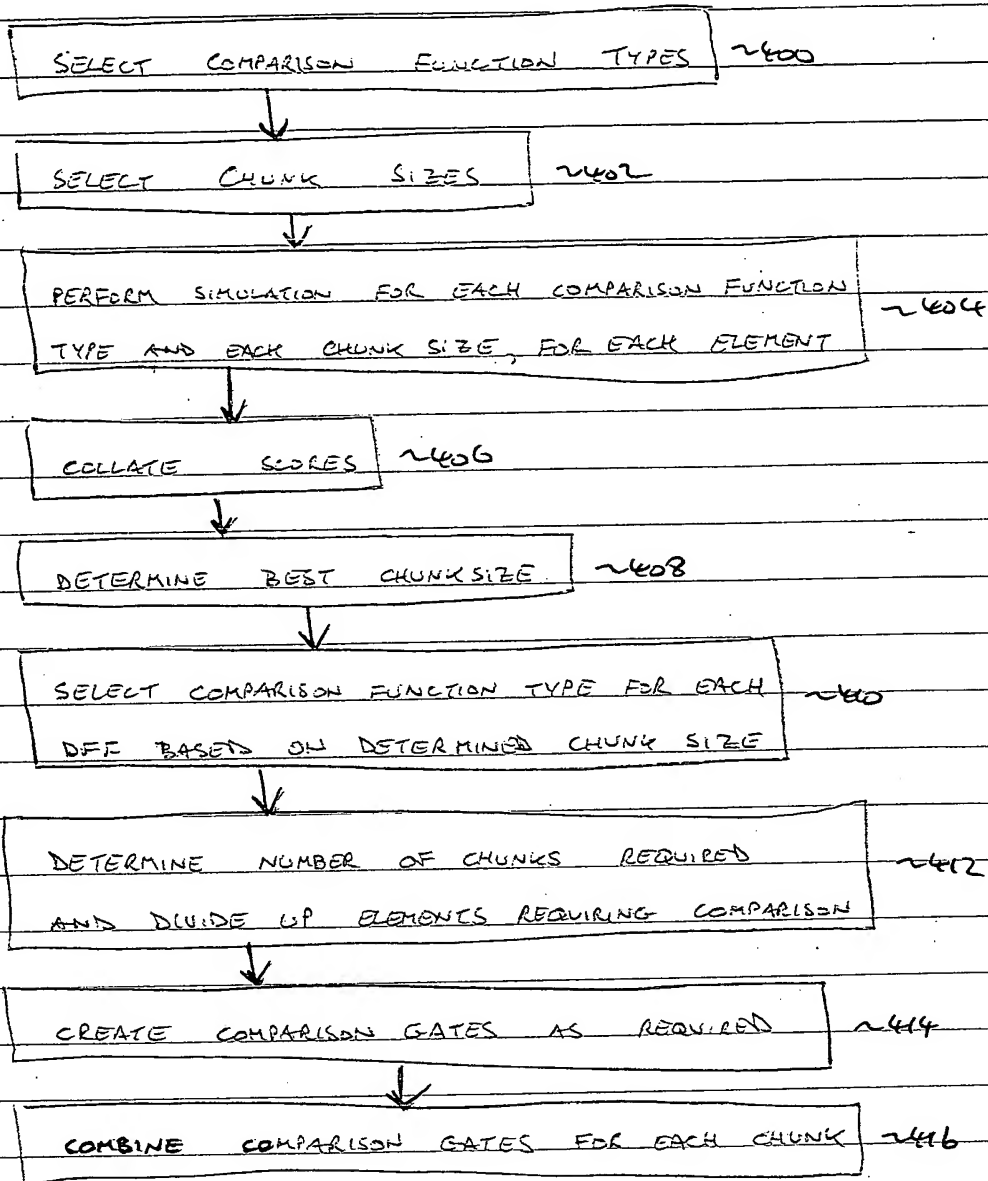 SELECT COMPARISON FUNCTION TYPES ~400
SELECT CHUNK SIZES ~402
PERFORM SIMULATION FOR EACH COMPARISON FUNCTION
TYPE AND EACH CHUNK SIZE, FOR EACH ELEMENT ~404
COLLATE SCORES ~406
DETERMINE BEST CHUNK SIZE ~408
SELECT COMPARISON FUNCTION TYPE FOR EACH ~410
DFF BASED ON DETERMINED CHUNK SIZE
DETERMINE NUMBER OF CHUNKS REQUIRED ~412
AND DIVIDE UP ELEMENTS REQUIRING COMPARISON
CREATE COMPARISON GATES AS REQUIRED ~414
COMBINE COMPARISON GATES FOR EACH CHUNK ~416